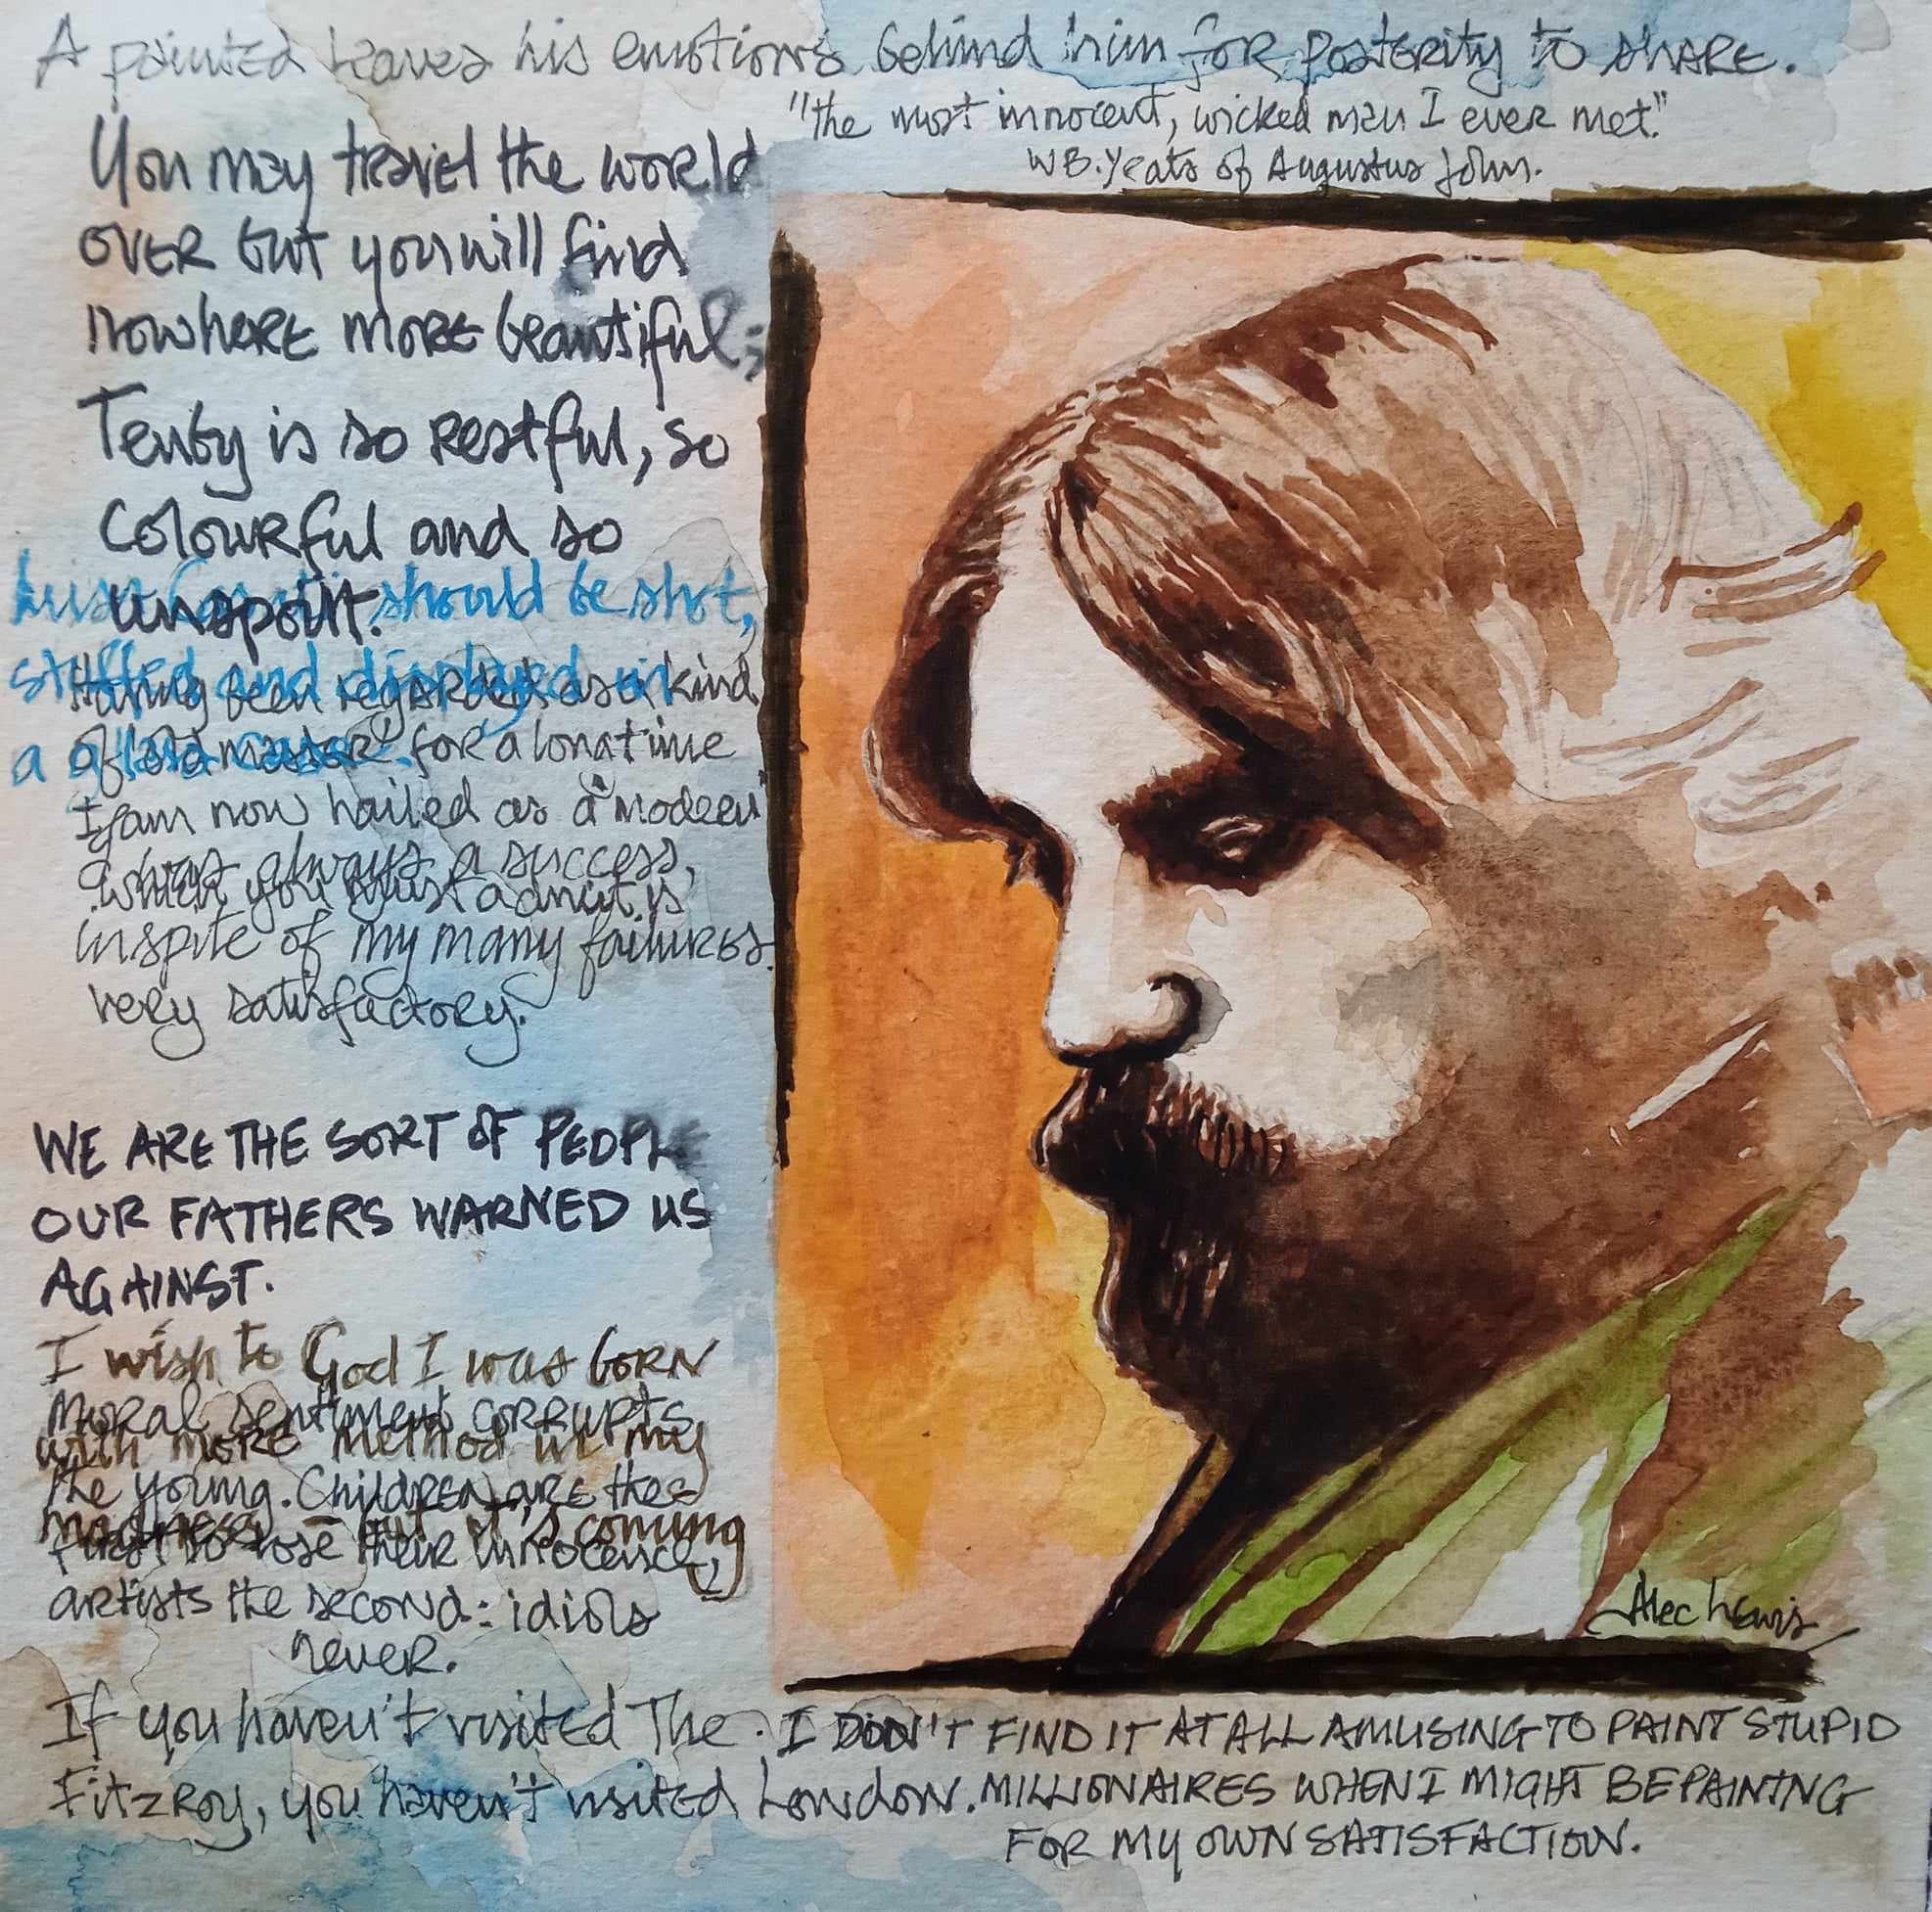 A painted leaves his emotions behind him for posterity to share.
"the most innocent, wicked man I ever met."
W.B. Yeats of Augustus John.
You may travel the world
over but you will find
nowhere more beautiful;
Tenby is so restful, so
colourful and so
unspoilt.
should be shot,
stuffed and displayed in
a glass case.
Having been regarded as a kind
of old master for a long time
I am now hailed as a modern
always a success,
which you must admit is
inspite of my many failures
very satisfactory.
WE ARE THE SORT OF PEOPLE
OUR FATHERS WARNED US
AGAINST.
I wish to God I was born
Moral sentiment corrupts
with more method in my
the young. Children are the
madness – but it's coming
first to lose their innocence,
artists the second: idiots
never.
If you haven't visited The
Fitzroy, you haven't visited London.
I DON'T FIND IT AT ALL AMUSING TO PAINT STUPID
MILLIONAIRES WHEN I MIGHT BE PAINTING
FOR MY OWN SATISFACTION.
Alec Lewis